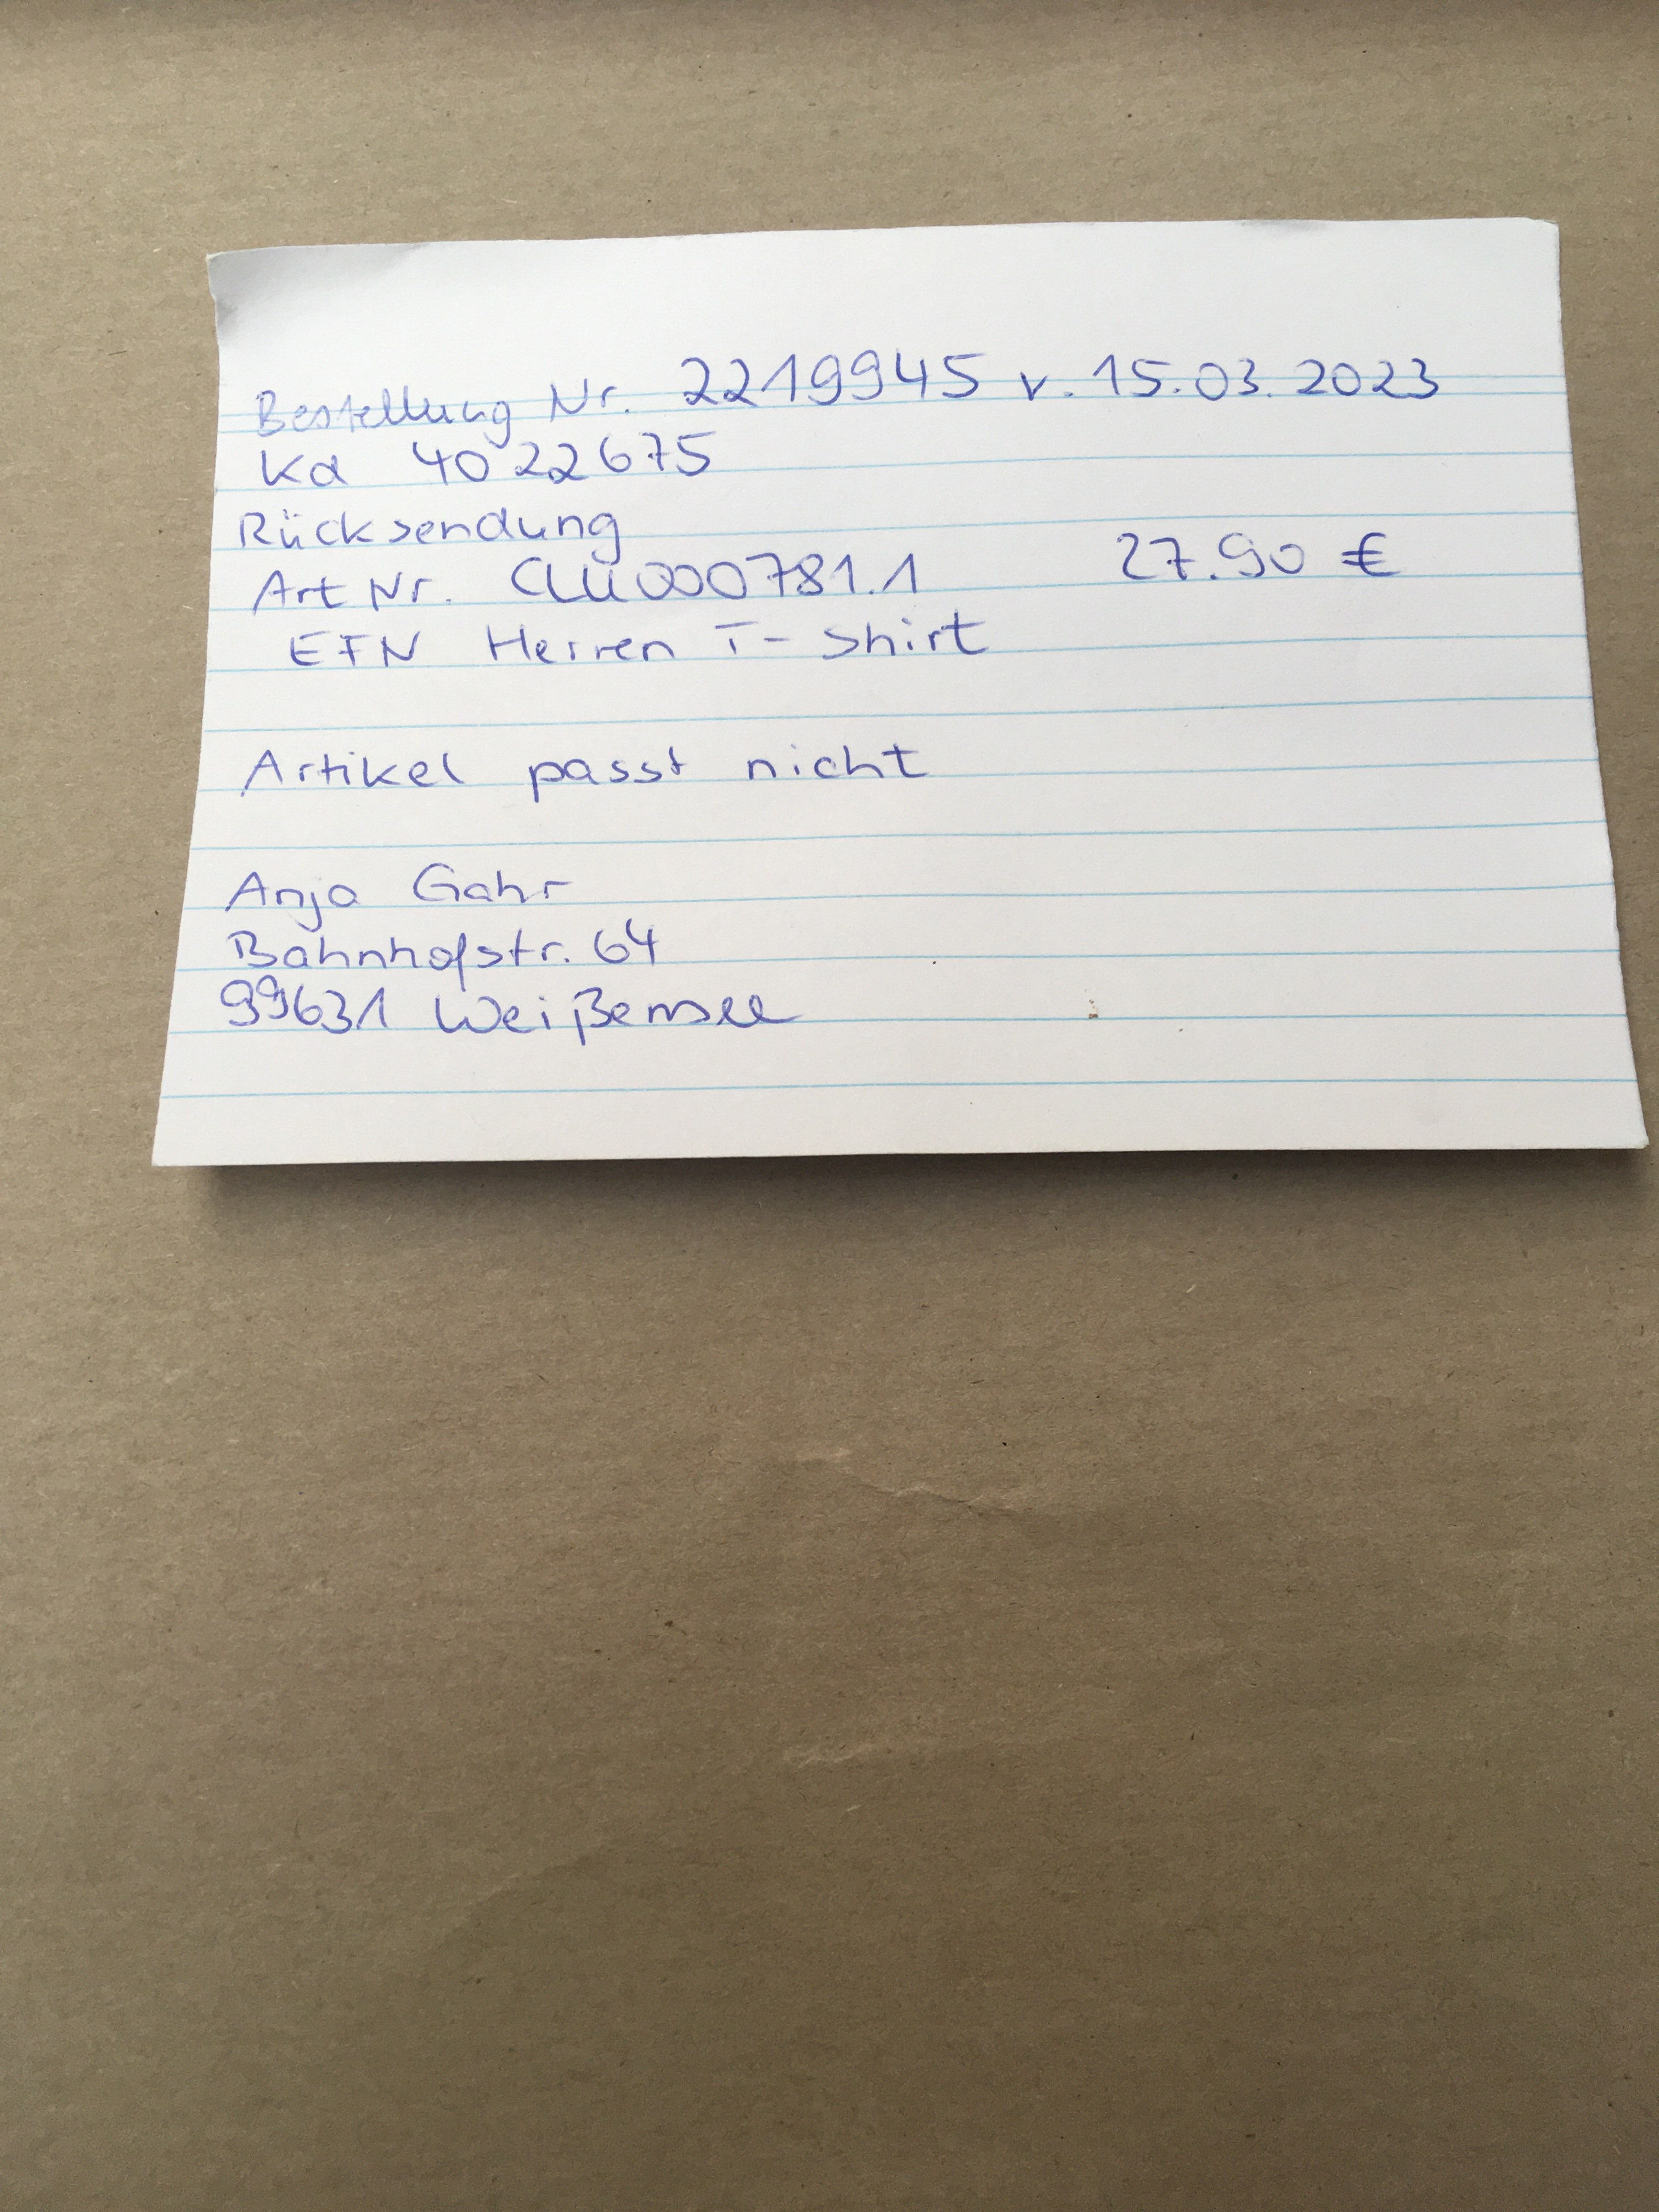 Bestellung Nr. 2219945 v. 15.03.2023
Kd 4022675
Rücksendung
Art Nr. 000781.1 27.90 €
EFN Herren T-Shirt
Artikel passt nicht
Anja Gahr
Bahnhofstr. 64
99631 Weißensee